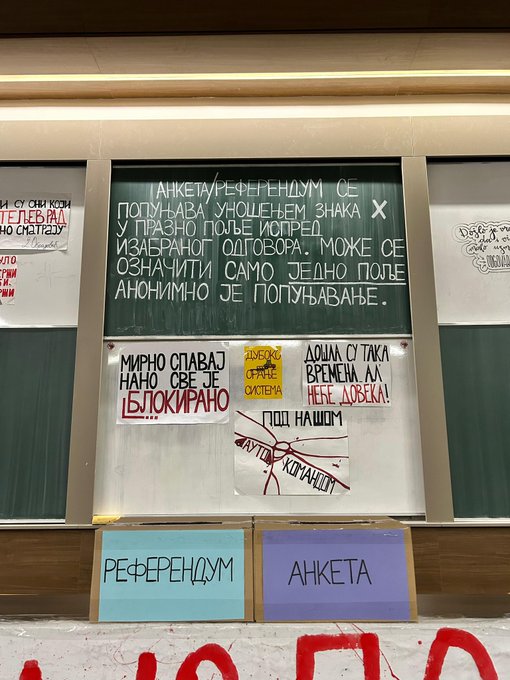 АНКЕТА/РЕФЕРЕНДУМ СЕ
ПОПУЊАВА УНОШЕЊЕМ ЗНАКА X
У ПРАЗНО ПОЉЕ ИСПРЕД
ИЗАБРАНОГ ОДГОВОРА. МОЖЕ СЕ
ОЗНАЧИТИ САМО ЈЕДНО ПОЉЕ
АНОНИМНО ЈЕ ПОПУЊАВАЊЕ.
И СУ ОНИ КОЈИ
РАД
НО СМАТРАЈУ
МИРНО СПАВАЈ
НАНО СВЕ ЈЕ
БЛОКИРАНО
ДУБОКО
ОРАЊЕ
СИСТЕМА
ДОШЛА СУ ТАКА
ВРЕМЕНА АЛ
НЕЋЕ ДОВЕКА!
ПОД НАШОМ
АУТО
КОМАНДОМ
РЕФЕРЕНДУМ
АНКЕТА